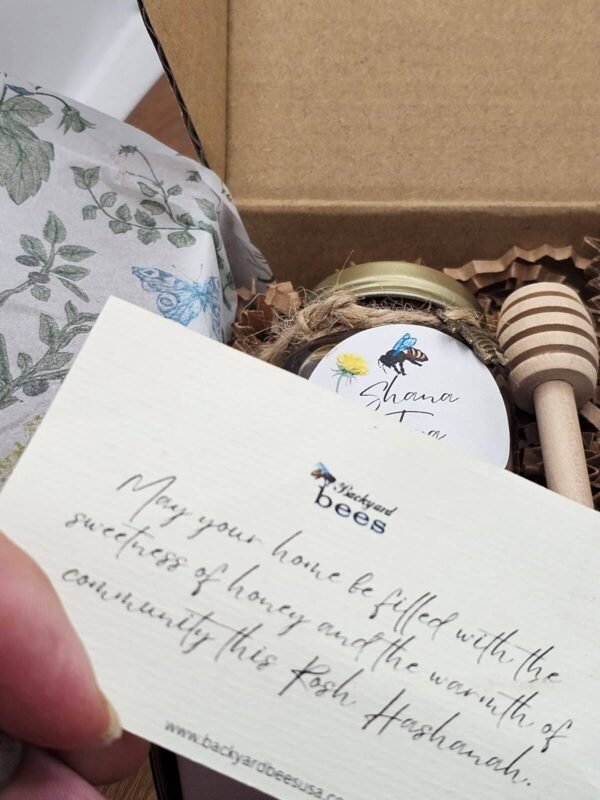 Shana
Backyard
bees
May your home be filled with the
sweetness of honey and the warmth of
community this Rosh Hashanah.
www.backyardbeesusa.c